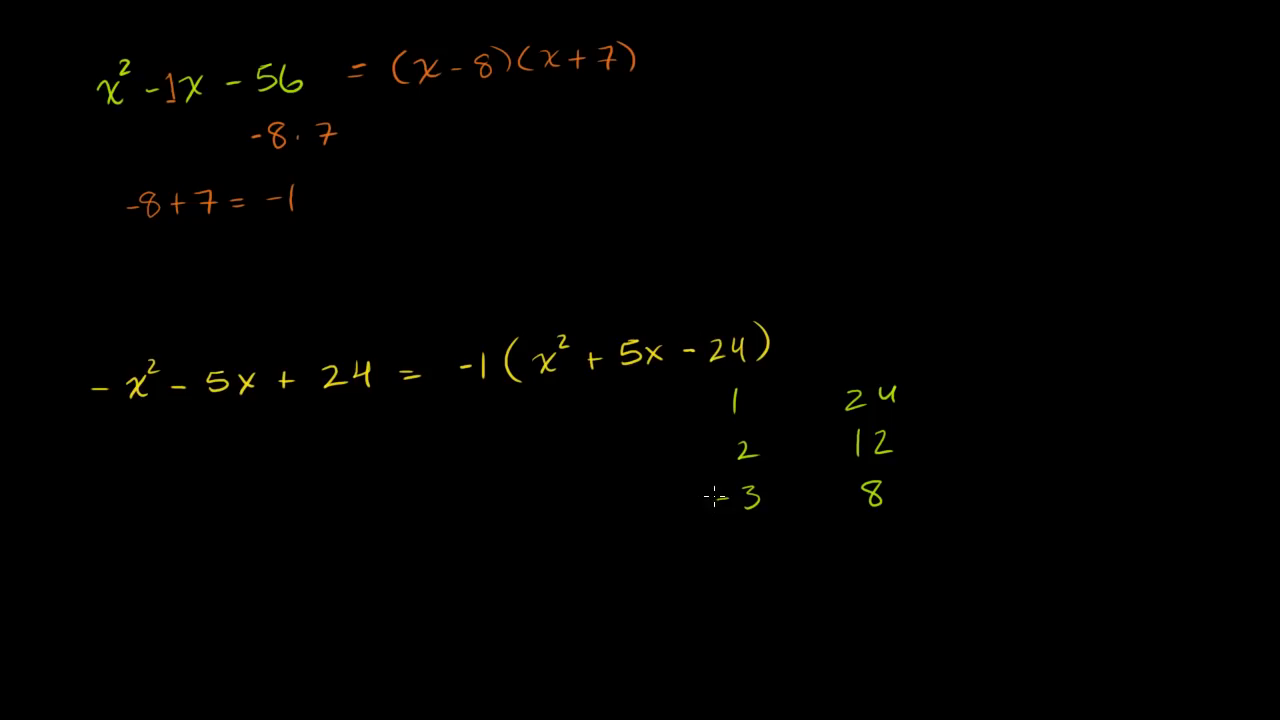 x² - 1x - 56 = (x - 8)(x + 7)
-8 · 7
-8 + 7 = -1
- x² - 5x + 24 = -1(x² + 5x - 24)
1 24
2 12
- 3 8